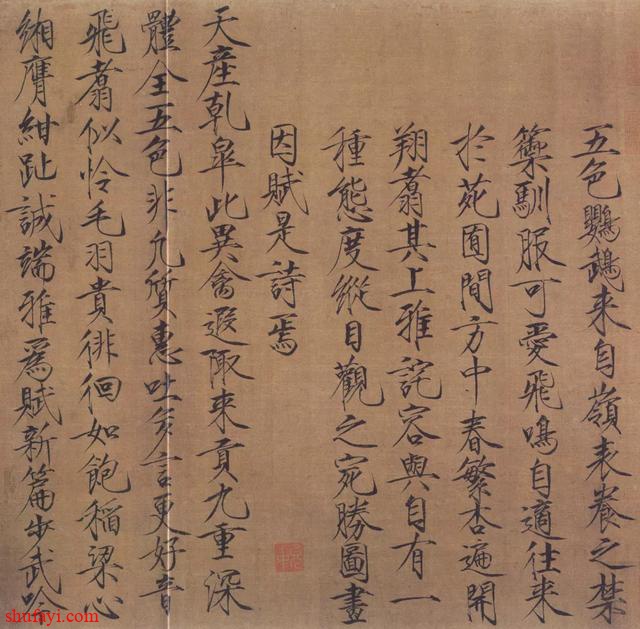 五色鸚鵡来自嶺表養之禁
籞馴服可愛飛鳴自適往来
於苑囿間方中春繁杏遍開
翔翥其上雅詫容與自有一
種態度縱目觀之宛勝圖畫
因賦是詩焉
天產乾皐此異禽遐陬来貢九重深
體全五色非凡質惠吐多言更好音
飛翥似怜毛羽貴徘徊如飽稻粱心
緗膺紺趾誠端雅爲賦新篇步武吟
shufayi.com